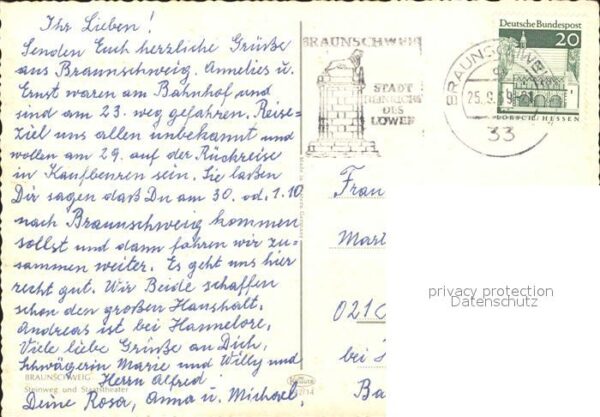 Ihr Lieben!
Senden Euch herzliche Grüße
aus Braunschweig. Annelies u.
Ernst waren am Bahnhof und
sind am 23. weg gefahren. Reise-
ziel uns allen unbekannt und
wollen am 29. auf der Rückreise
in Kaufbeuren sein. Sie laßen
Dir sagen daß Du am 30. od. 1.10.
nach Braunschweig kommen
sollst und dann fahren wir zu-
sammen weiter. Es geht uns hier
recht gut. Wir Beide schaffen
schon den großen Haushalt.
Andreas ist bei Hannelore.
Viele liebe Grüße an Dich,
Schwägerin Marie und Willy und
Herrn Alfred.
Deine Rosa, Anna u. Michael.
BRAUNSCHWEIG
Steinweg und Staatstheater
BRAUNSCHWEIG
STADT
HEINRICHS
DES
LÖWEN
BRAUNSCHWEIG
25.9.69
33
Deutsche Bundespost
20
LORSCH/HESSEN
Frau
021
bei
privacy protection
Datenschutz